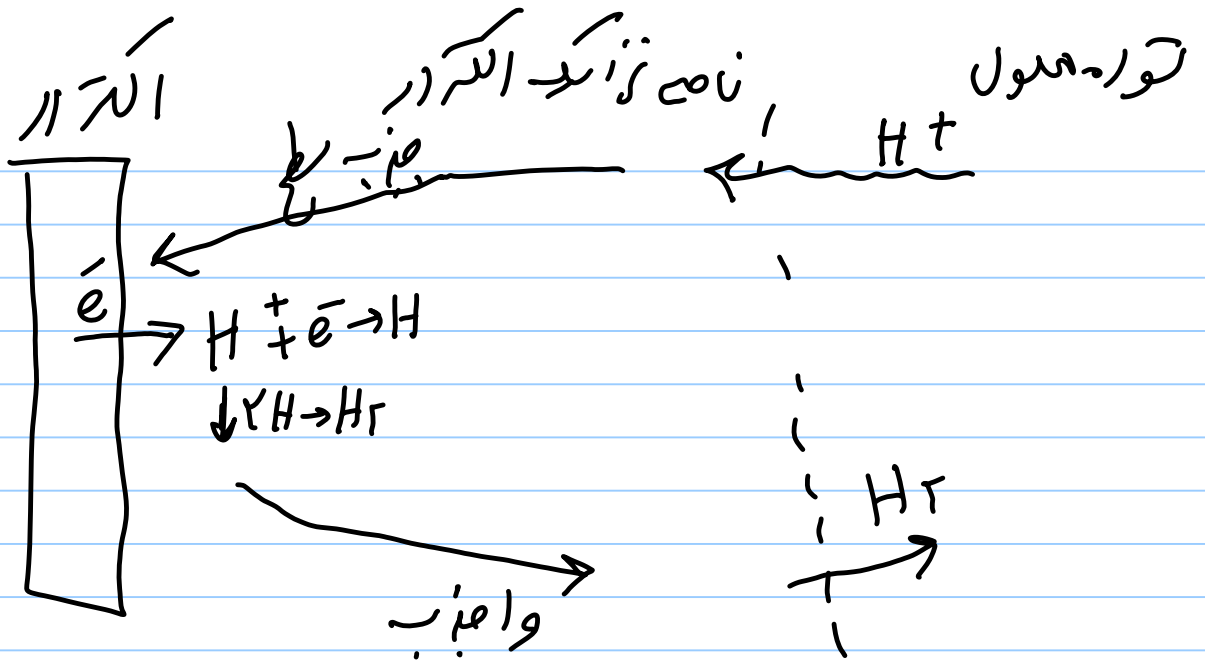 توده محلول
ناحیه نزدیک الکترود
الکترود
H+
جذب سطحی
e-
H+ + e- → H
↓ ۲H → H۲
H۲
واجذب